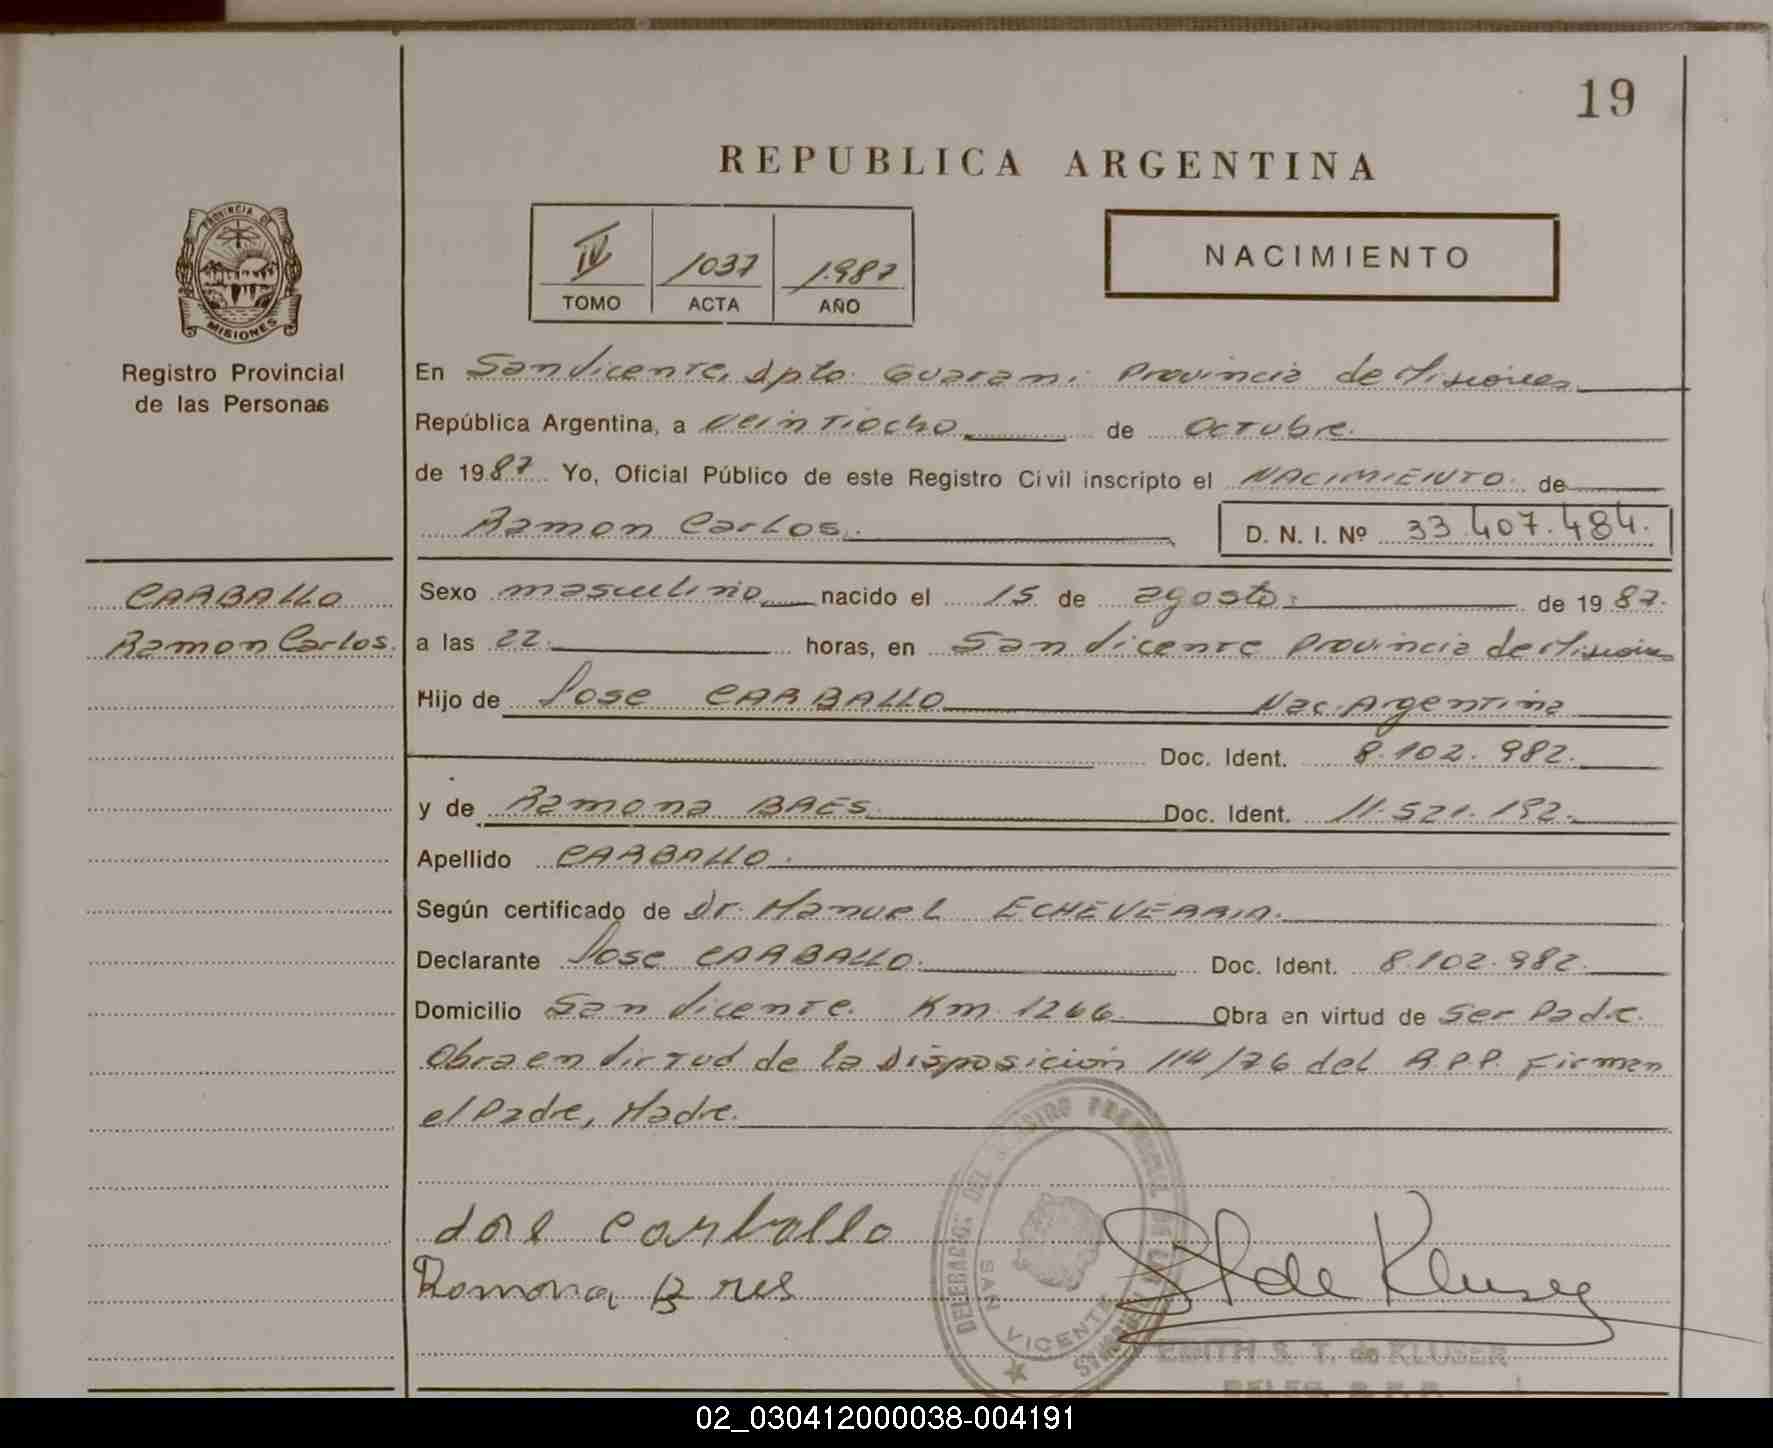 19
REPUBLICA ARGENTINA
PROVINCIA DE
MISIONES
Registro Provincial
de las Personas
IV 1037 1.987
TOMO ACTA AÑO
NACIMIENTO
En San Vicente, Dpto. Guarani Provincia de Misiones
República Argentina, a veintiocho de octubre.
de 1987 Yo, Oficial Público de este Registro Civil inscripto el NACIMIENTO de
Ramon Carlos. D. N. I. Nº 33.407.484.
CARBALLO
Ramon Carlos.
Sexo masculino nacido el 15 de agosto de 1987.
a las 22 horas, en San Vicente Provincia de Misiones
Hijo de Jose CARBALLO Nac. Argentina
Doc. Ident. 8.102.982.
y de Ramona BAES. Doc. Ident. 11.521.192.
Apellido CARBALLO.
Según certificado de Dr. Manuel ECHEVERRIA.
Declarante Jose CARBALLO. Doc. Ident. 8.102.982.
Domicilio San Vicente. Km. 1266 Obra en virtud de Ser Padre.
Obra en Virtud de la Disposición 114/76 del R.P.P. Firman
el Padre, Madre.
José Carballo
Ramona B res
SAN VICENTE
EDITH S. T. de KLUSER
02_030412000038-004191